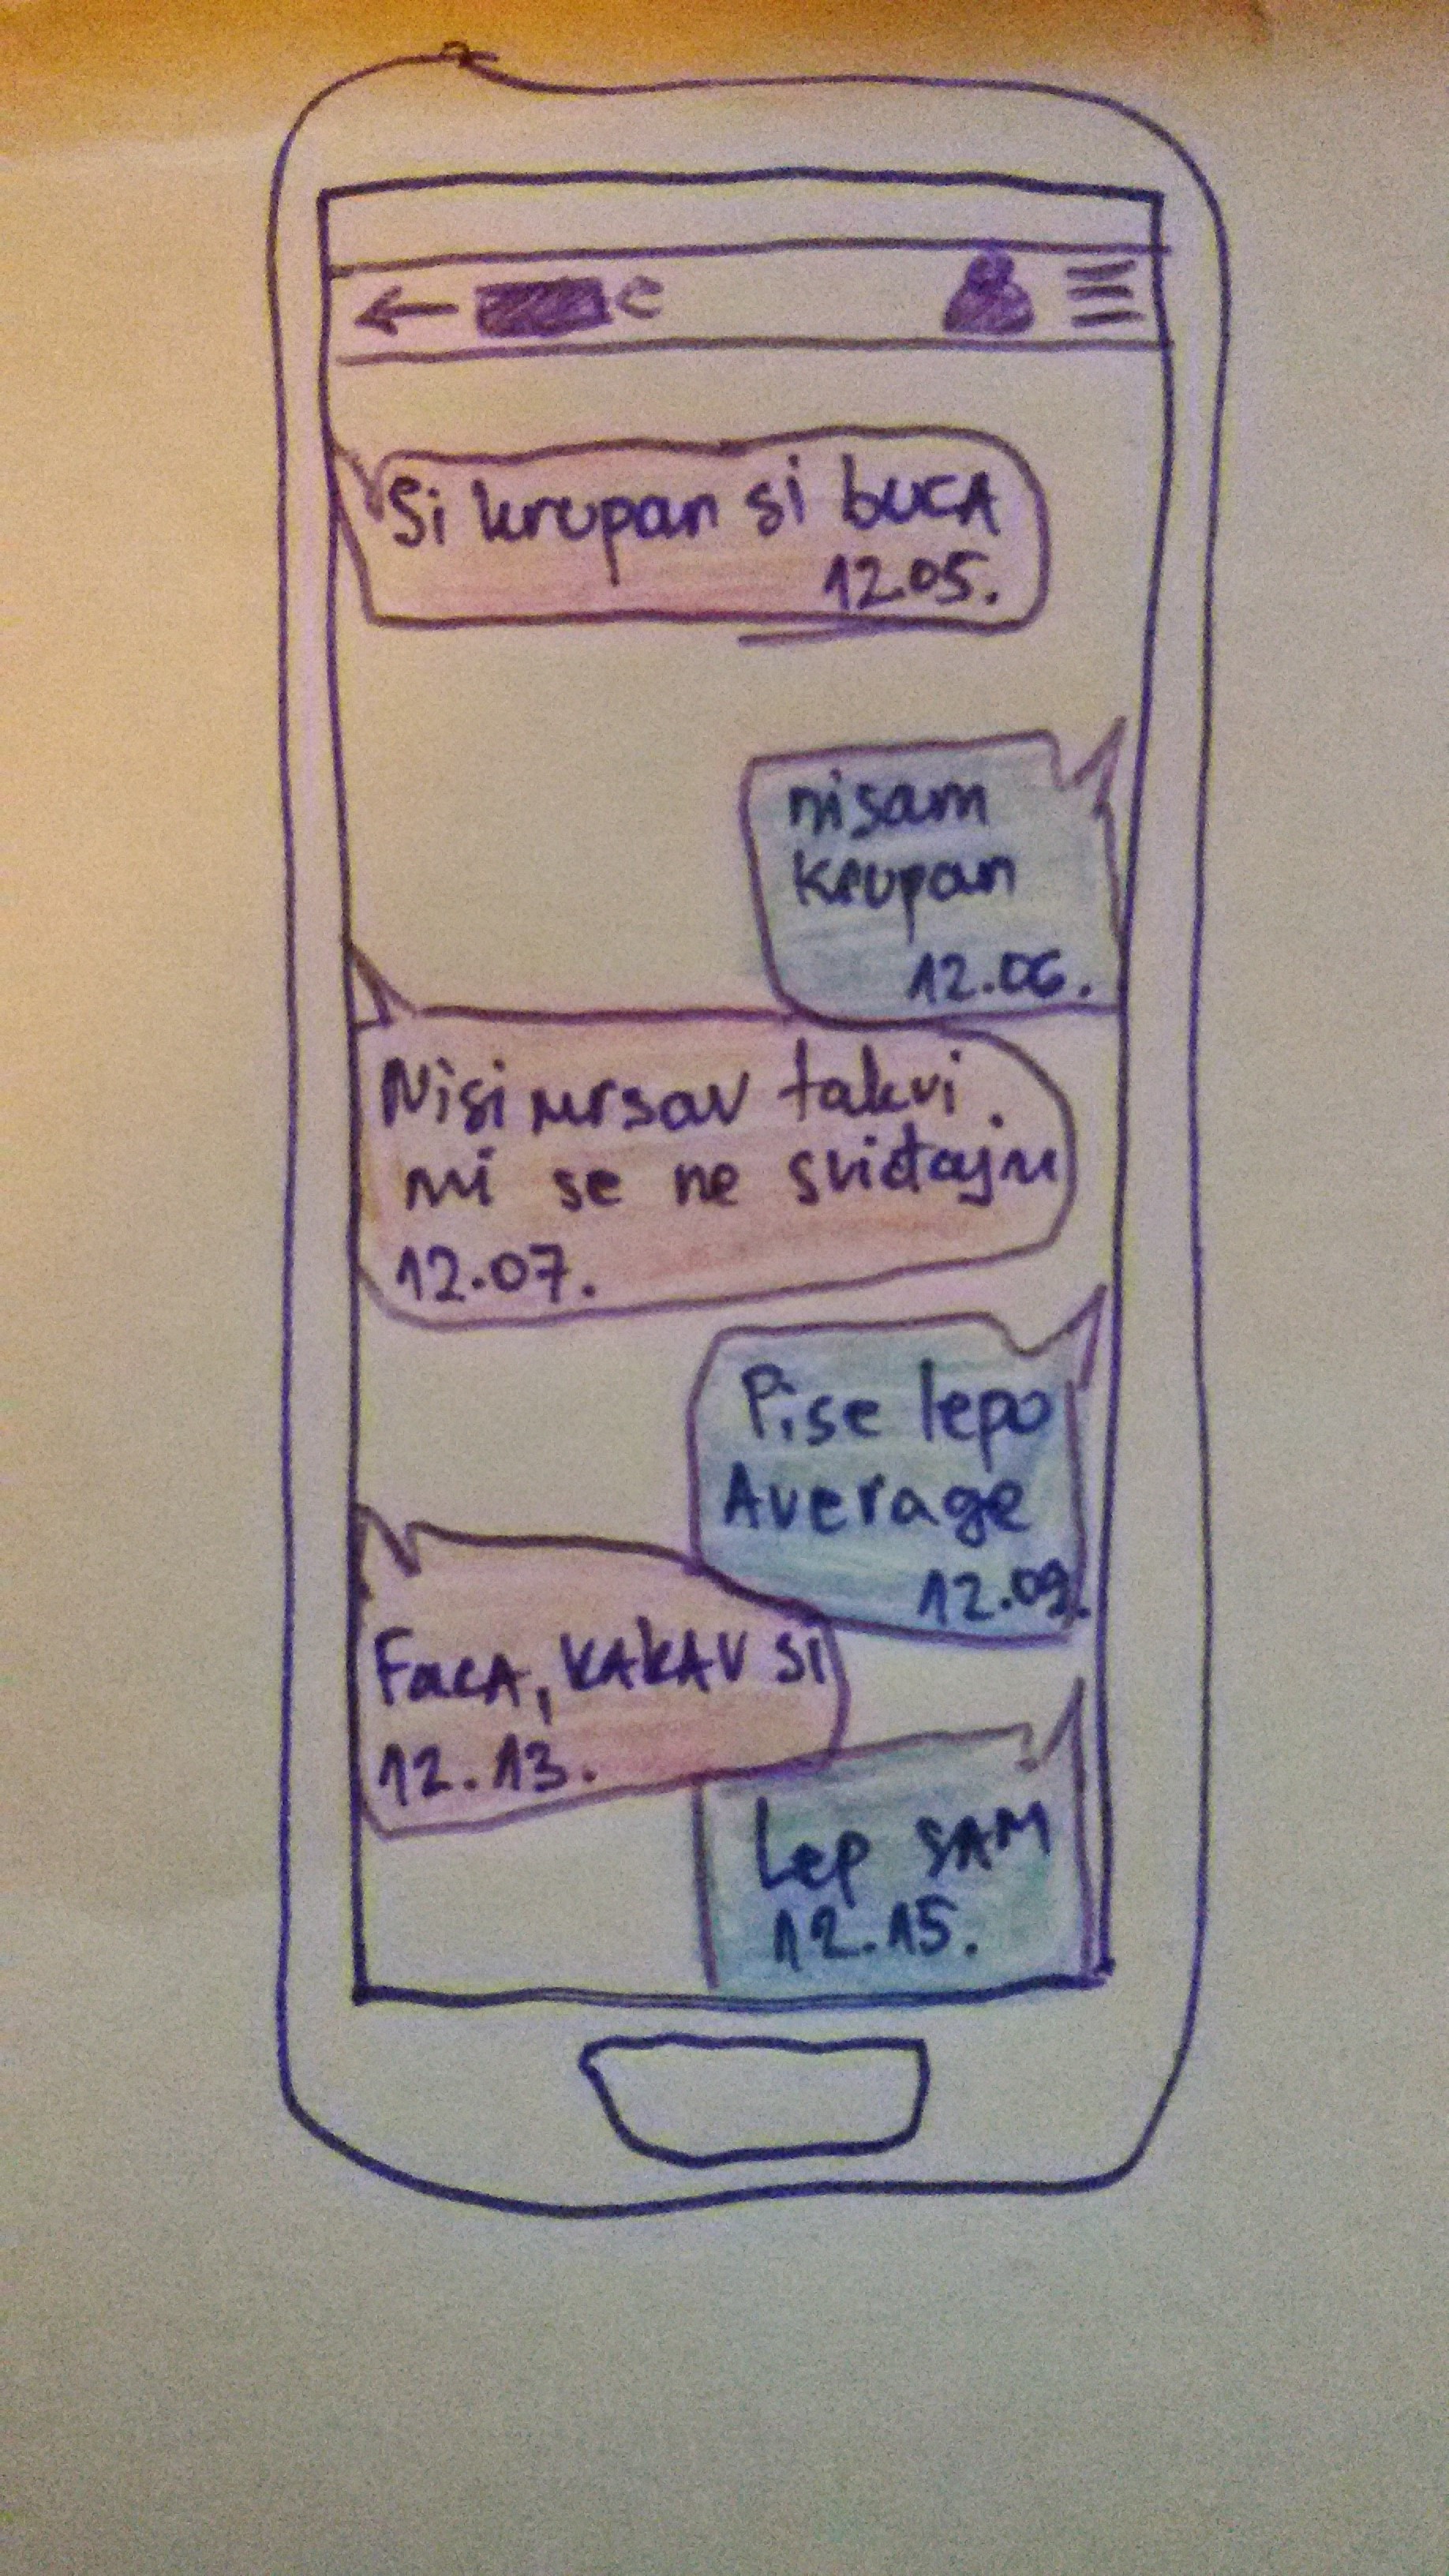 e
Si krupan si buca
12.05.
nisam
krupan
12.06.
Nisi mrsav takvi
mi se ne sviđaju
12.07.
Pise lepo
Average
12.09.
Faca, KAKAV SI
12.13.
Lep SAM
12.15.